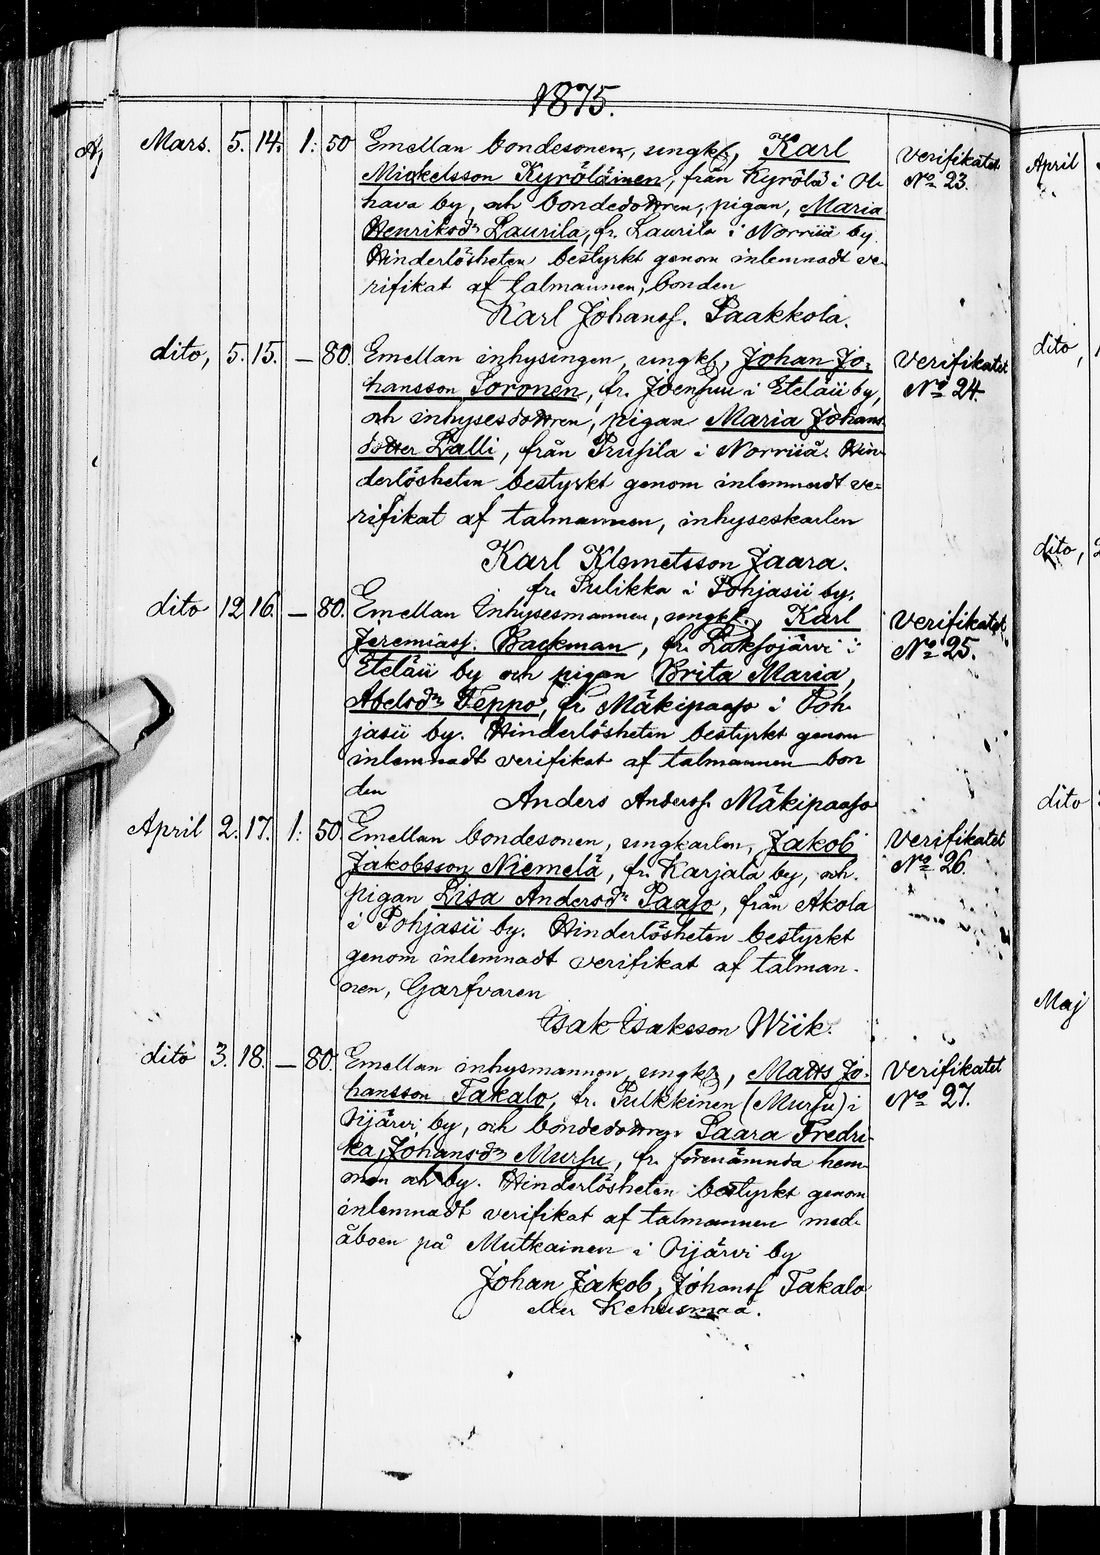 1875.
Mars. 5. 14. 1: 50 Emellan bondesonen, ungk., Karl Verifikatet
Mickelsson Kyröläinen, från Kyrölä i Ol- No 23.
hava by, och bondedottren, pigan, Maria
Henriksdr Laurila, fr. Laurila i Norriiå by.
Hinderlösheten bestyrkt genom inlemnadt ve-
rifikat af talmannen, bonden
Karl Johanss. Paakkola.
dito, 5. 15. — 80. Emellan inhysingen, ungk., Johan Jo- Verifikatet
hansson Soronen, fr. Joensuu i Eteläii by, No 24.
och inhysesdottren, pigan Maria Johans
dotter Lalli, från Prusila i Norriiå. Hin
derlösheten bestyrkt genom inlemnadt ve-
rifikat af talmannen, inhyseskarlen
Karl Klemetsson Jaara.
fr. Pulikka i Pohjasii by.
dito 12. 16. — 80. Emellan Inhysesmannen, ungk., Karl Verifikatet
Jeremiass. Backman, fr. Laksojärvi i No 25.
Eteläii by och pigan Brita Maria,
Abelsdr Teppo, fr. Mäkipaaso i Poh-
jasii by. Hinderlösheten bestyrkt genom
inlemnadt verifikat af talmannen bon
den Anders Anderss. Mäkipaaso
April 2. 17. 1: 50. Emellan bondesonen, ungkarlen, Jakob Verifikatet
Jakobsson Niemelä, fr. Karjala by, och No 26.
pigan Lisa Andersdr Paaso, från Akola
i Pohjasii by. Hinderlösheten bestyrkt
genom inlemnadt verifikat af talman-
nen, Garfvaren
Isak Isaksson Wiik.
dito 3. 18. — 80. Emellan inhysmannen, ungk., Matts Jo- Verifikatet
hansson Takalo, fr. Pulkkinen (Mursu) i No 27.
Oijärvi by, och bondedottrn Saara Fredri-
ka, Johansdr Mursu, fr. förenämnda hem-
man och by. Hinderlösheten bestyrkt genom
inlemnadt verifikat af talmannen med-
åboen på Mutkainen i Oijärvi by
Johan Jakob, Johanss Takalo
eller Kehusmaa.
April
dito,
dito,
dito
Maj